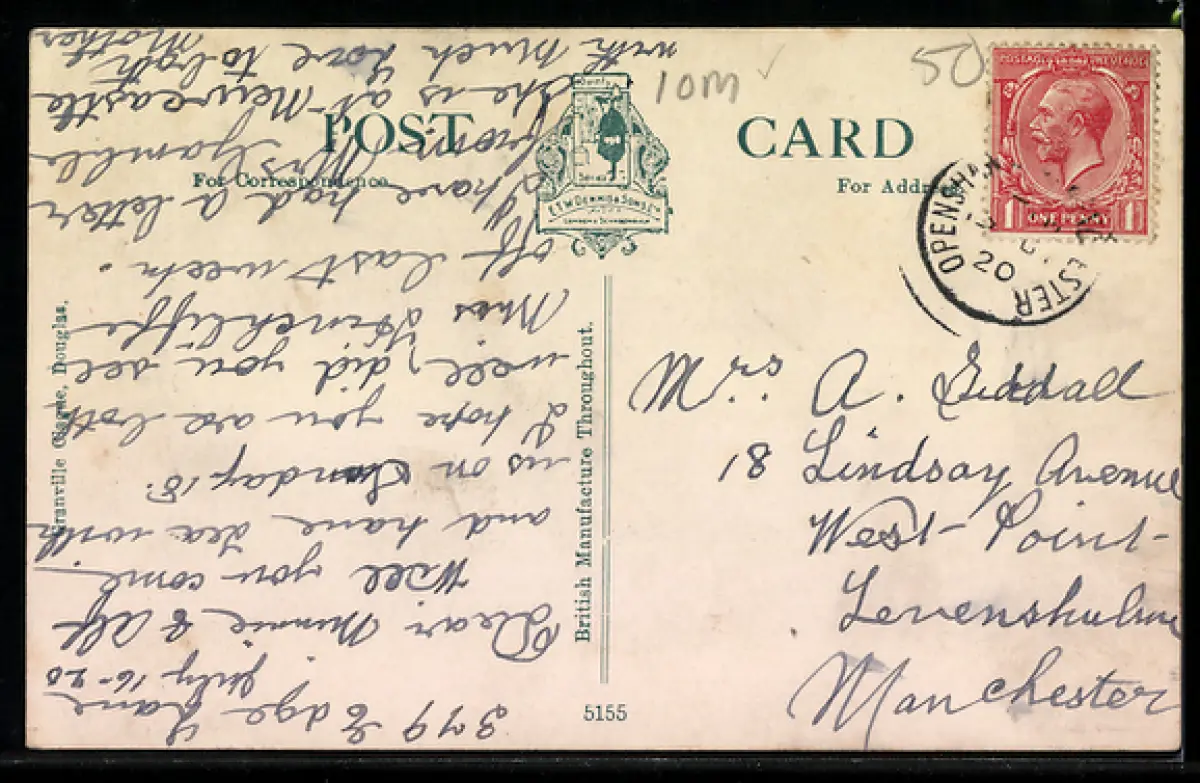 POST CARD
For Correspondence.
For Address
10M
50
E.T.W. DENNIS & SONS LTD
LONDON & SCARBOROUGH
POSTAGE REVENUE
1 ONE PENNY 1
OPENSHAW MANCHESTER
20
Granville Clague, Douglas.
British Manufacture Throughout.
5155
379 Edge Lane
July 16-20
Dear Minnie & Alf
Will you come
and have tea with
us on Sunday 18.
I hope you are both
well, did you see
Miss Hinchliffe
off last week.
I have had a letter
from Mrs Gamble
She is at Newcastle
with much love to both
Mother
Mrs. A. Siddall
18 Lindsay Avenue
West-Point-
Levenshulme
Manchester